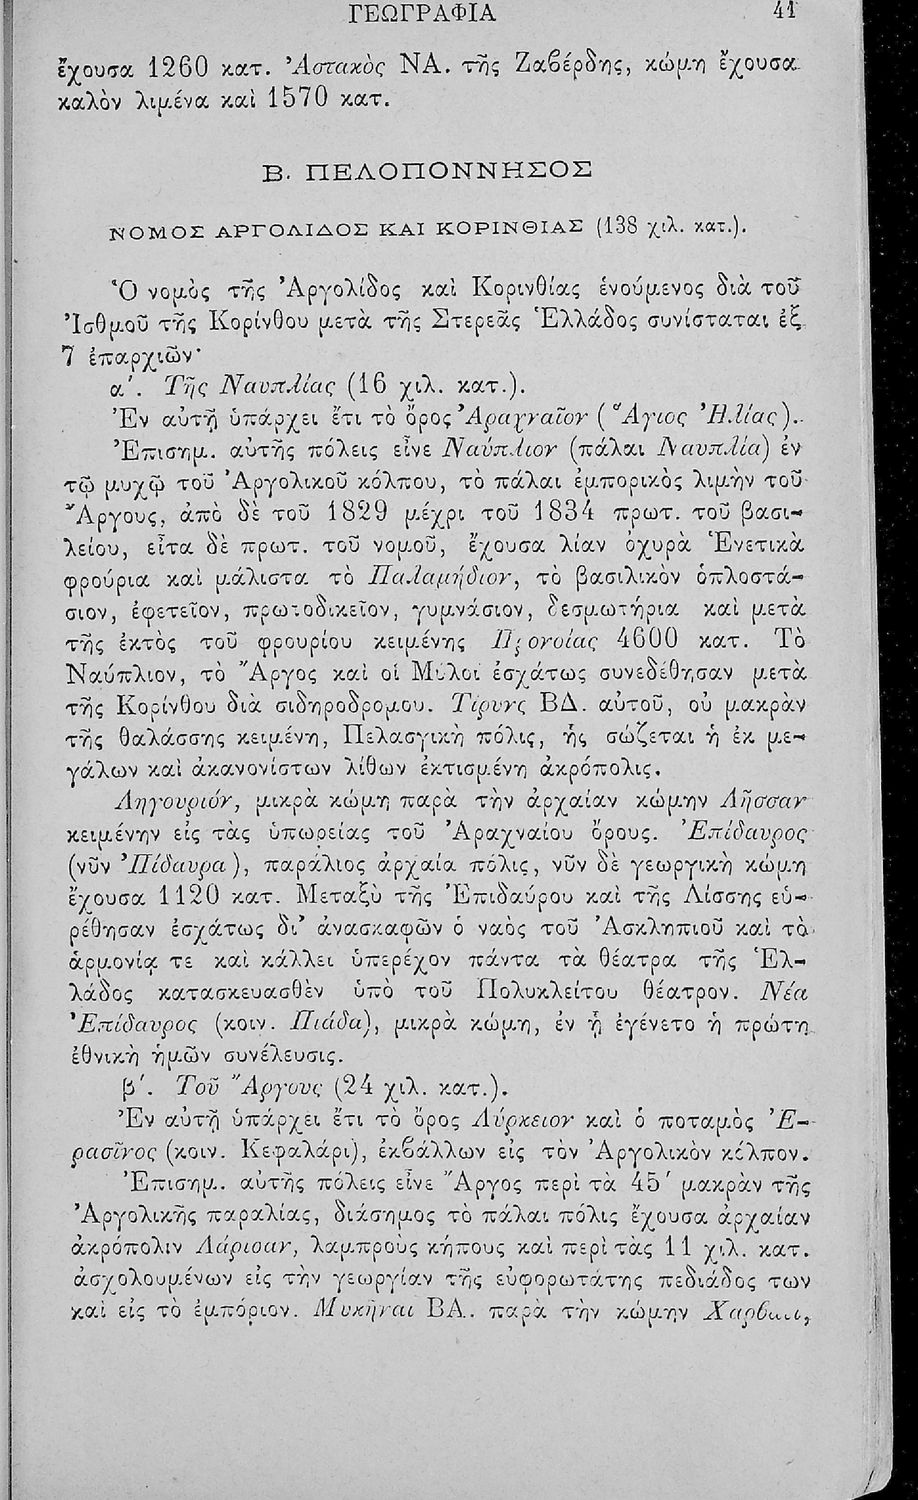 ΓΕΩΓΡΑΦΙΑ 41
ἔχουσα 1260 κατ. Ἀστακὸς ΝΑ. τῆς Ζαβέρδης, κώμη ἔχουσα
καλὸν λιμένα καὶ 1570 κατ.
Β. ΠΕΛΟΠΟΝΝΗΣΟΣ
ΝΟΜΟΣ ΑΡΓΟΛΙΔΟΣ ΚΑΙ ΚΟΡΙΝΘΙΑΣ (138 χιλ. κατ.).
Ὁ νομὸς τῆς Ἀργολίδος καὶ Κορινθίας ἑνούμενος διὰ τοῦ
Ἰσθμοῦ τῆς Κορίνθου μετὰ τῆς Στερεᾶς Ἑλλάδος συνίσταται ἐξ
7 ἐπαρχιῶν·
α΄. Τῆς Ναυπλίας (16 χιλ. κατ.).
Ἐν αὐτῇ ὑπάρχει ἔτι τὸ ὄρος Ἀραχναῖον (Ἅγιος Ἠλίας).
Ἐπισημ. αὐτῆς πόλεις εἶνε Ναύπλιον (πάλαι Ναυπλία) ἐν
τῷ μυχῷ τοῦ Ἀργολικοῦ κόλπου, τὸ πάλαι ἐμπορικὸς λιμὴν τοῦ
Ἄργους, ἀπὸ δὲ τοῦ 1829 μέχρι τοῦ 1834 πρωτ. τοῦ βασι-
λείου, εἶτα δὲ πρωτ. τοῦ νομοῦ, ἔχουσα λίαν ὀχυρὰ Ἑνετικὰ
φρούρια καὶ μάλιστα τὸ Παλαμήδιον, τὸ βασιλικὸν ὁπλοστά-
σιον, ἐφετεῖον, πρωτοδικεῖον, γυμνάσιον, δεσμωτήρια καὶ μετὰ
τῆς ἐκτὸς τοῦ φρουρίου κειμένης Προνοίας 4600 κατ. Τὸ
Ναύπλιον, τὸ Ἄργος καὶ οἱ Μύλοι ἐσχάτως συνεδέθησαν μετὰ
τῆς Κορίνθου διὰ σιδηροδρομου. Τίρυνς ΒΔ. αὐτοῦ, οὐ μακρὰν
τῆς θαλάσσης κειμένη, Πελασγικὴ πόλις, ἧς σώζεται ἡ ἐκ με-
γάλων καὶ ἀκανονίστων λίθων ἐκτισμένη ἀκρόπολις.
Ληγουριόν, μικρὰ κώμη παρὰ τὴν ἀρχαίαν κώμην Λῆσσαν
κειμένην εἰς τὰς ὑπωρείας τοῦ Ἀραχναίου ὄρους. Ἐπίδαυρος
(νῦν Ἐπίδαυρα), παράλιος ἀρχαία πόλις, νῦν δὲ γεωργικὴ κώμη
ἔχουσα 1120 κατ. Μεταξὺ τῆς Ἐπιδαύρου καὶ τῆς Λίσσης εὑ-
ρέθησαν ἐσχάτως δι᾽ ἀνασκαφῶν ὁ ναὸς τοῦ Ἀσκληπιοῦ καὶ τὸ
ἁρμονίᾳ τε καὶ κάλλει ὑπερέχον πάντα τὰ θέατρα τῆς Ἑλ-
λάδος κατασκευασθὲν ὑπὸ τοῦ Πολυκλείτου θέατρον. Νέα
Ἐπίδαυρος (κοιν. Πιάδα), μικρὰ κώμη, ἐν ᾗ ἐγένετο ἡ πρώτη
ἐθνικὴ ἡμῶν συνέλευσις.
β΄. Τοῦ Ἄργους (24 χιλ. κατ.).
Ἐν αὐτῇ ὑπάρχει ἔτι τὸ ὄρος Λύρκειον καὶ ὁ ποταμὸς Ἐ-
ρασῖνος (κοιν. Κεφαλάρι), ἐκβάλλων εἰς τὸν Ἀργολικὸν κόλπον.
Ἐπισημ. αὐτῆς πόλεις εἶνε Ἄργος περὶ τὰ 45΄ μακρὰν τῆς
Ἀργολικῆς παραλίας, διάσημος τὸ πάλαι πόλις ἔχουσα ἀρχαίαν
ἀκρόπολιν Λάρισαν, λαμπροὺς κήπους καὶ περὶ τὰς 11 χιλ. κατ.
ἀσχολουμένων εἰς τὴν γεωργίαν τῆς εὐφορωτάτης πεδιάδος των
καὶ εἰς τὸ ἐμπόριον. Μυκῆναι ΒΑ. παρὰ τὴν κώμην